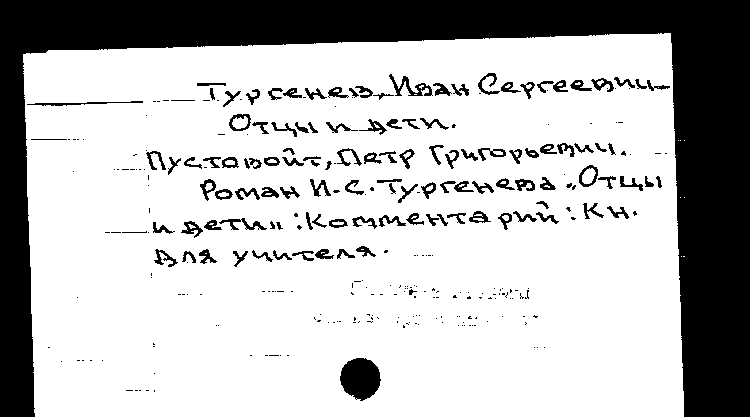 Тургенев, Иван Сергеевич
Отцы и дети.
Пустовойт, Петр Григорьевич.
Роман И.С. Тургенева „Отцы
и дети" : Комментарий : Кн.
для учителя.